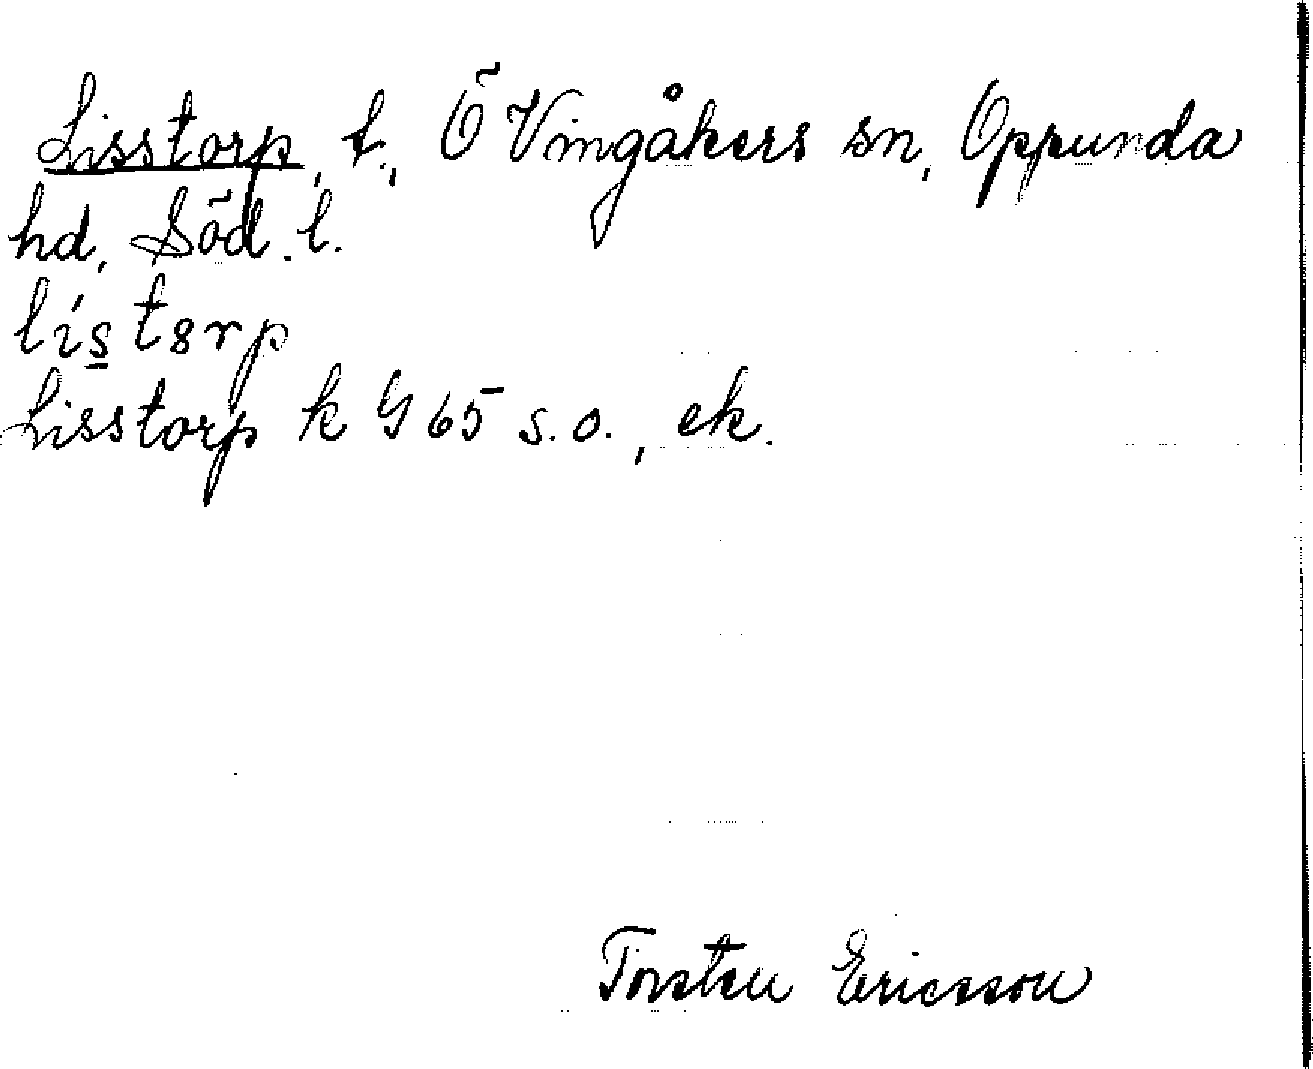 Lisstorp, t., Ö Vingåkers sn, Oppunda
hd, Söd. l.
lístɜrp
Lisstorp k G 65 s.o., ek.
Torsten Ericsson